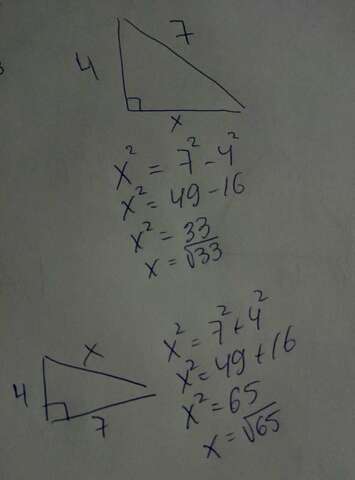 7
4
x
x² = 7² - 4²
x² = 49 - 16
x² = 33
x = √33
x
4
7
x² = 7² + 4²
x² = 49 + 16
x² = 65
x = √65